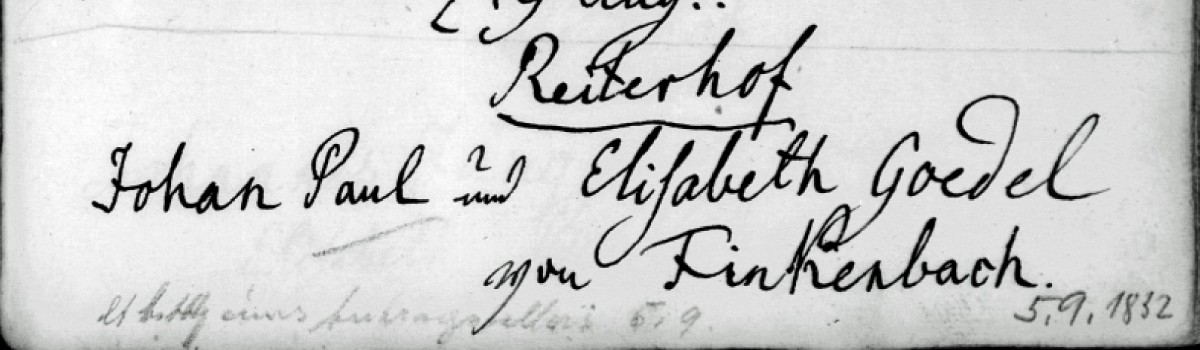 Reiterhof
Johan Paul und Elisabeth Goedel
von Finkenbach.
5.9.
5.9.1832